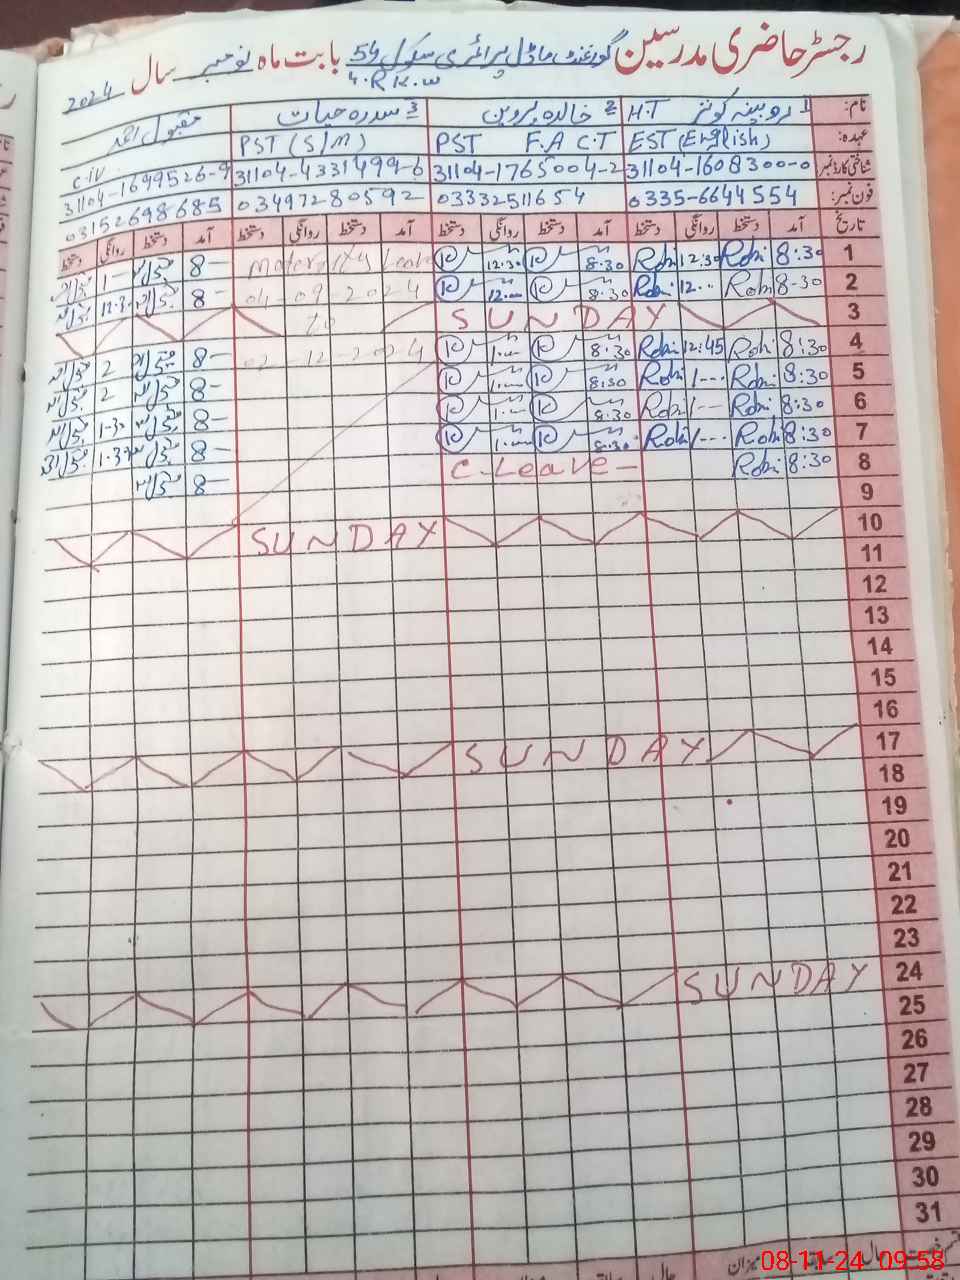 رجسٹر حاضری مدرسین گورنمنٹ ماڈل پرائمری سکول 54 بابت ماہ نومبر سال 2024
4.R K.W
نام: 1 روبینہ کوثر H.T 2 خالدہ پروین 3 سدرہ حیات مقبول احمد
عہدہ: EST (English) PST F.A C.T PST (S/M) C.IV
شناختی کارڈ نمبر 31104-1608300-0 31104-1765004-2 31104-4331499-6 31104-1699526-9
فون نمبر: 0335-6644554 03332511654 03497280592 03152698685
تاریخ آمد دستخط روانگی دستخط آمد دستخط روانگی دستخط آمد دستخط روانگی دستخط آمد دستخط روانگی دستخط
1 8:30 Robi 12:30 Robi 8:30 12:30 Maternity Leave 8- 1-
2 8-30 Robi 12... Robi 8:30 12... 04-09-2024 8-
3 SUNDAY To
4 8:30 Robi 12:45 Robi 8:30 1... 02-12-2024 8- 2
5 8:30 Robi 1--- Robi 8:30 1... 8- 2
6 8:30 Robi 1-- Robi 8:30 1... 8- 1-30
7 8:30 Robi 1--- Robi 8:30 1... 8- 1-3
8 8:30 Robi C-Leave- 8-
9
10 SUNDAY
11
12
13
14
15
16
17 SUNDAY
18
19
20
21
22
23
24 SUNDAY
25
26
27
28
29
30
31
میزان
08-11-24 09:58